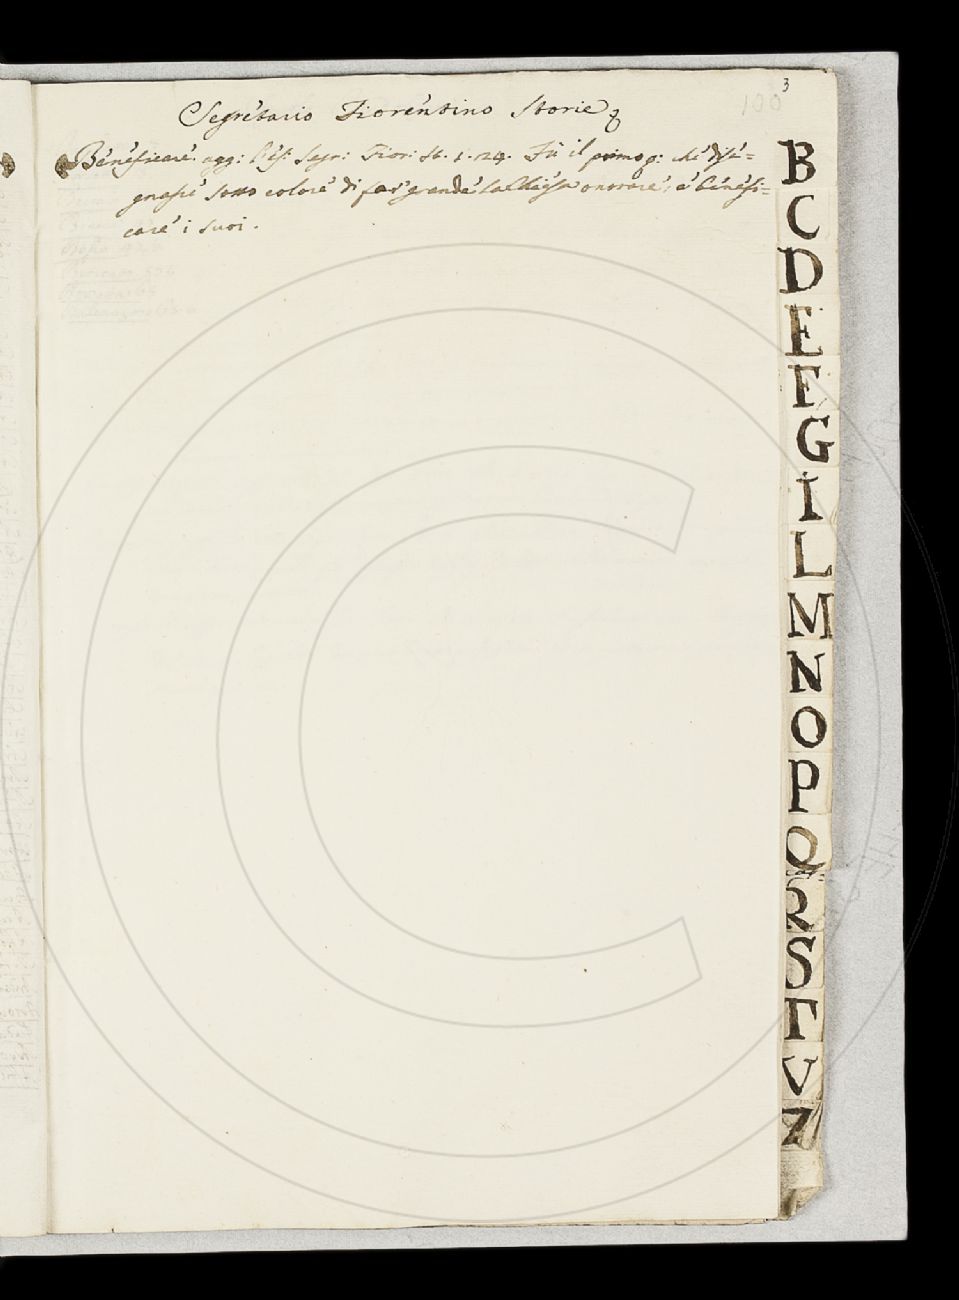 3
100
Segrétario Fioréntino Storie
Bénéficaré. agg: l'És: Segr: Fior: St. 1. 24. Fù il primo che disé=
gnassé sotto coloré di far grandé la Chiesa onoraré, é bénéfi=
caré i suoi.
B
C
D
E
F
G
I
L
M
N
O
P
Q
R
S
T
V
Z